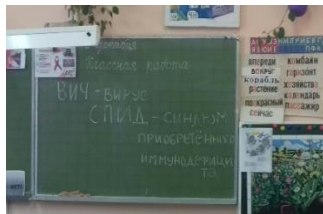 декабря
Классная работа
ВИЧ - вирус
СПИД - синдром
приобретённого
иммунодефици
та
впереди
вокруг
корабль
растение
прекрасный
сейчас
комбайн
горизонт
хозяйство
календарь
пассажир